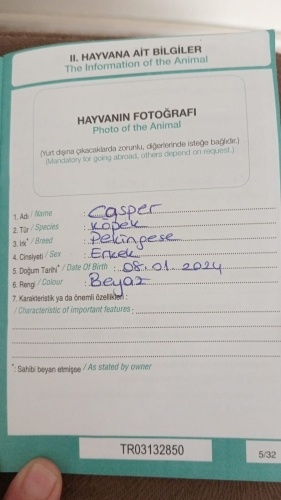 II. HAYVANA AİT BİLGİLER
The Information of the Animal
HAYVANIN FOTOĞRAFI
Photo of the Animal
(Yurt dışına çıkacaklarda zorunlu, diğerlerinde isteğe bağlıdır.)
(Mandatory for going abroad, others depend on request.)
1. Adı / Name : Casper
2. Tür / Species : Köpek
3. Irk* / Breed : Pekingese
4. Cinsiyeti / Sex : Erkek
5. Doğum Tarihi* / Date Of Birth : 08.01.2024
6. Rengi / Colour : Beyaz
7. Karakteristik ya da önemli özellikleri :
/ Characteristic of important features :
*: Sahibi beyan etmişse / As stated by owner
TR03132850
5/32